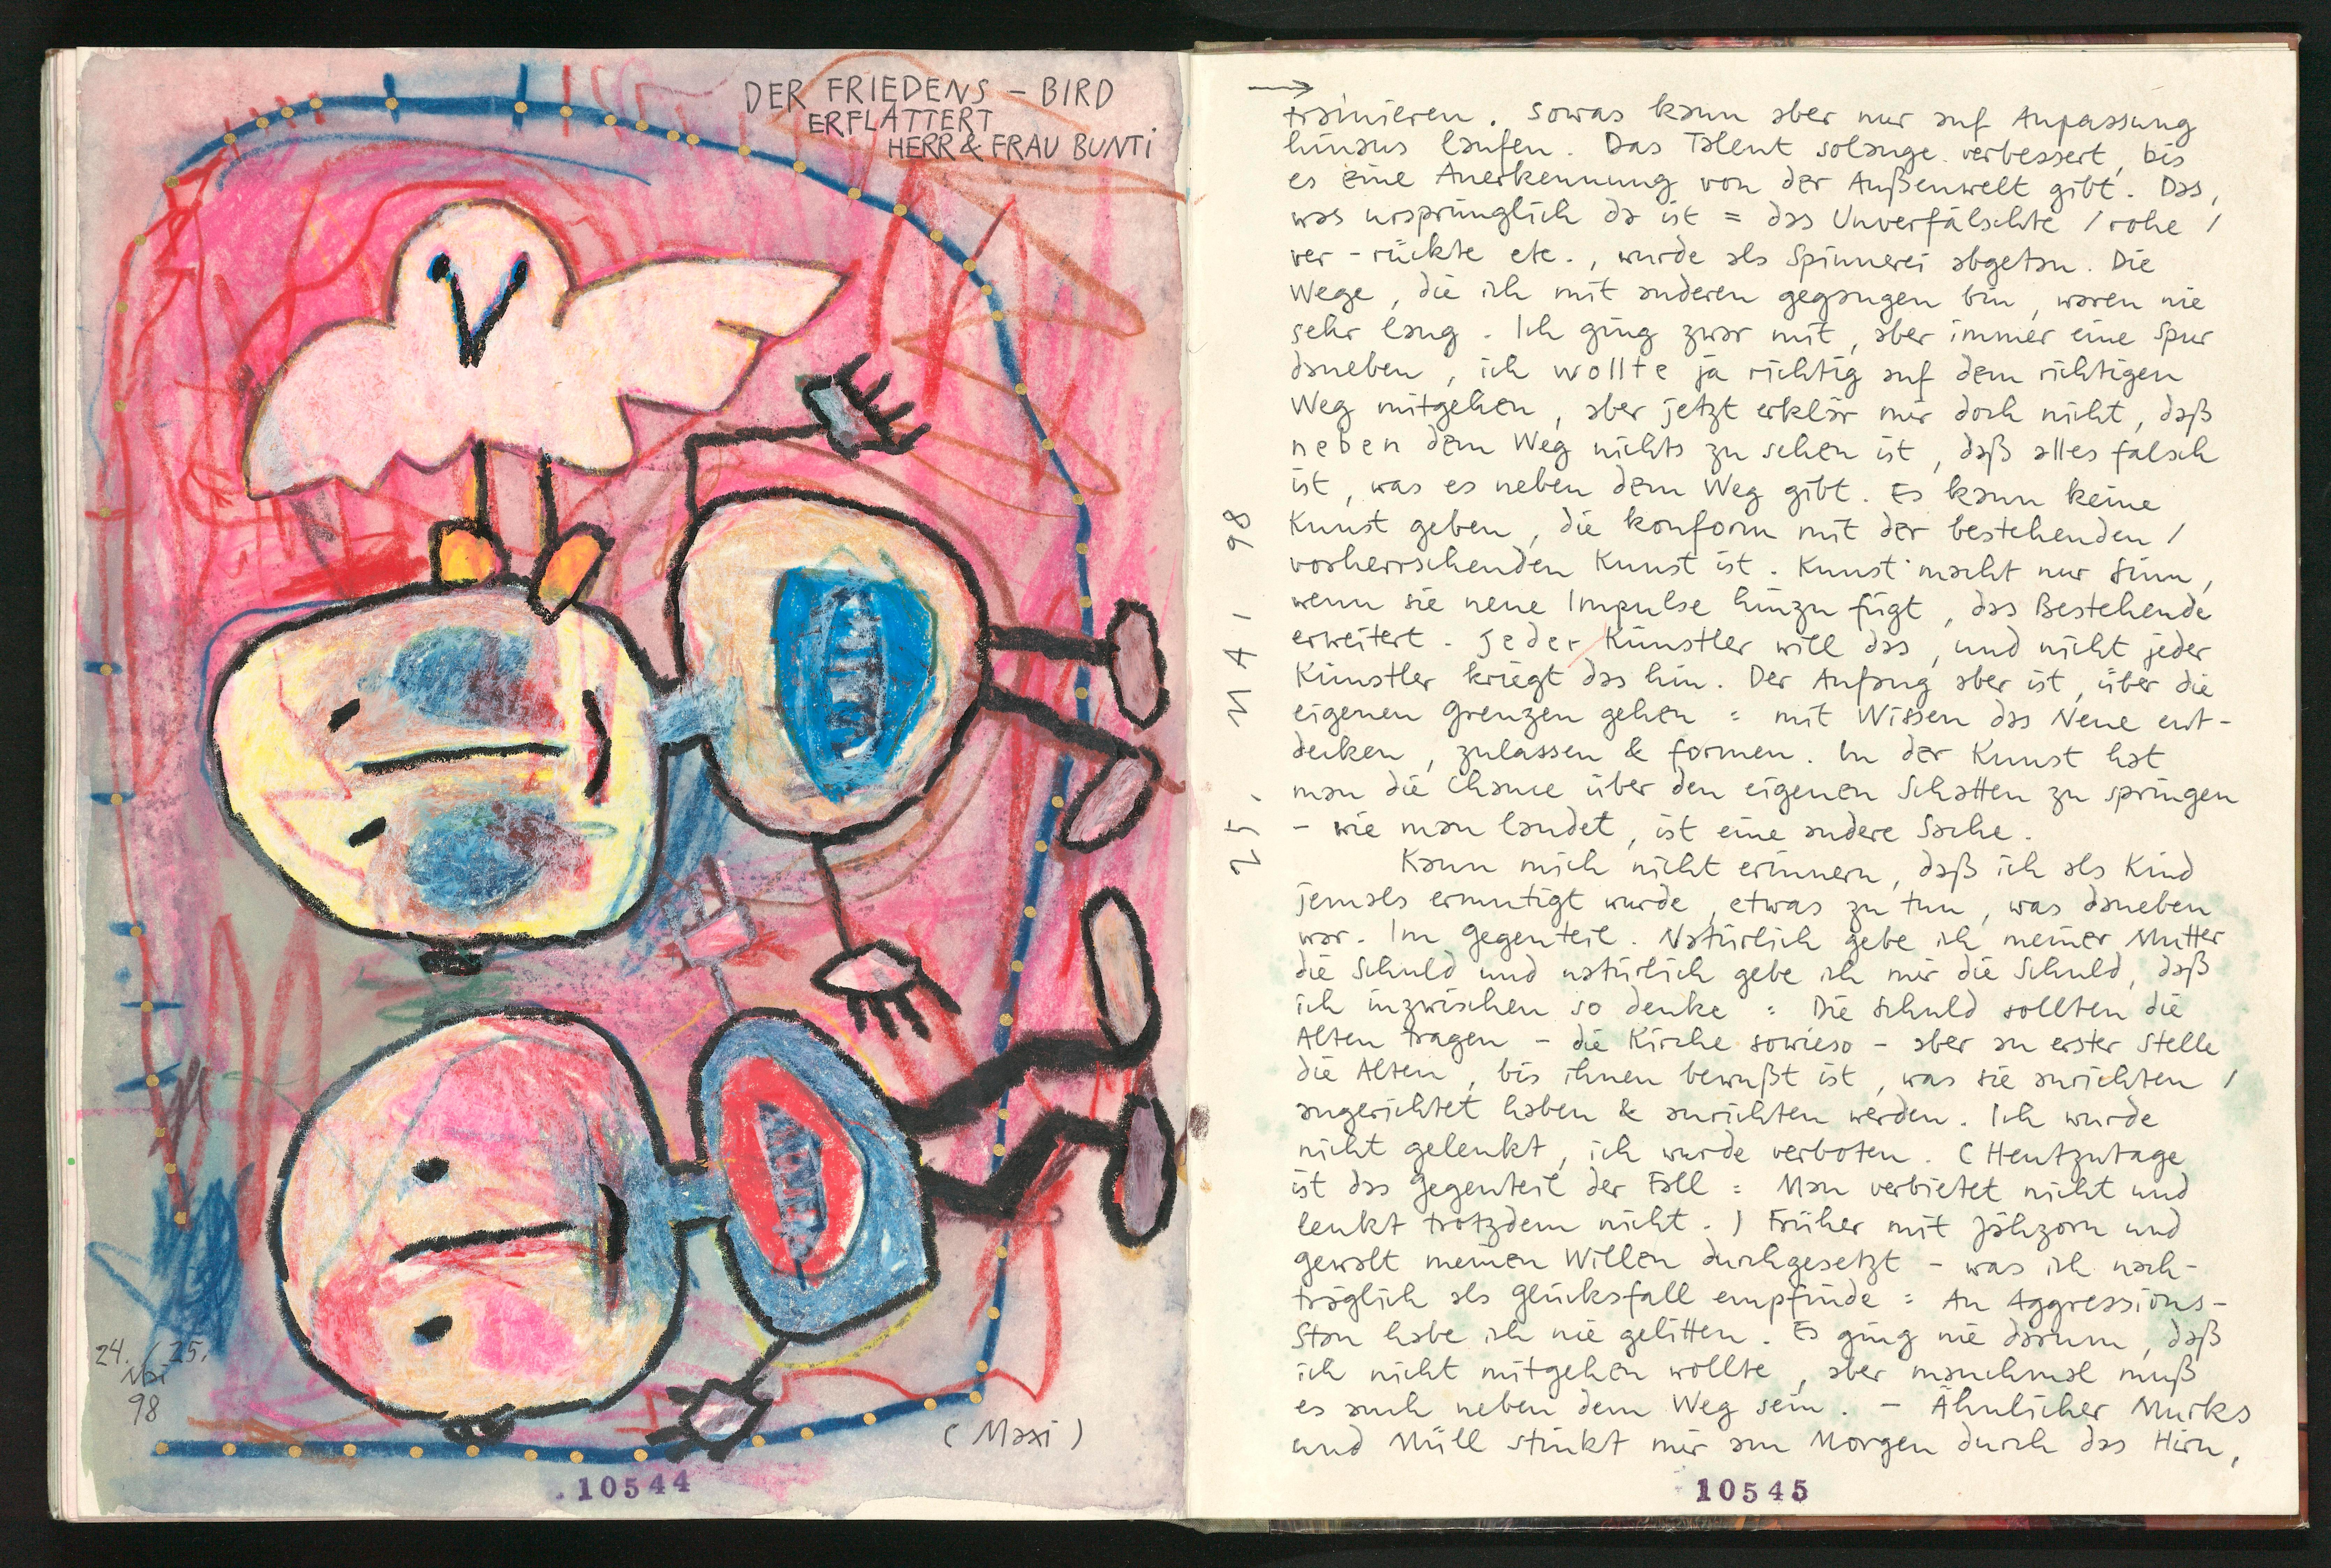 DER FRIEDENS – BIRD
ERFLATTERT
HERR & FRAU BUNTI
24. / 25.
Mai
98
(Maxi)
10544
25. MAI 98
→
trainieren. Sowas kann aber nur auf Anpassung
hinaus laufen. Das Talent solange verbessert, bis
es eine Anerkennung von der Außenwelt gibt. Das,
was ursprünglich da ist = das Unverfälschte / rohe /
ver-rückte etc., wurde als Spinnerei abgetan. Die
Wege, die ich mit anderen gegangen bin, waren nie
sehr lang. Ich ging zwar mit, aber immer eine Spur
daneben, ich wollte ja richtig auf dem richtigen
Weg mitgehen, aber jetzt erklär mir doch nicht, daß
neben dem Weg nichts zu sehen ist, daß alles falsch
ist, was es neben dem Weg gibt. Es kann keine
Kunst geben, die konform mit der bestehenden /
vorherrschenden Kunst ist. Kunst macht nur Sinn,
wenn sie neue Impulse hinzu fügt, das Bestehende
erweitert. Jeder Künstler will das, und nicht jeder
Künstler kriegt das hin. Der Anfang aber ist, über die
eigenen Grenzen gehen = mit Wissen das Neue ent-
decken, zulassen & formen. In der Kunst hat
man die Chance über den eigenen Schatten zu springen
– wie man landet, ist eine andere Sache.
Kann mich nicht erinnern, daß ich als Kind
jemals ermutigt wurde, etwas zu tun, was daneben
war. Im Gegenteil. Natürlich gebe ich meiner Mutter
die Schuld und natürlich gebe ich mir die Schuld, daß
ich inzwischen so denke = Die Schuld sollten die
Alten tragen – die Kirche sowieso – aber an erster Stelle
die Alten, bis ihnen bewußt ist, was sie anrichten /
angerichtet haben & anrichten werden. Ich wurde
nicht gelenkt, ich wurde verboten. (Heutzutage
ist das Gegenteil der Fall = Man verbietet nicht und
lenkt trotzdem nicht.) Früher mit Jähzorn und
Gewalt meinen Willen durchgesetzt – was ich nach-
träglich als Glücksfall empfinde = An Aggressions-
Stau habe ich nie gelitten. Es ging nie darum, daß
ich nicht mitgehen wollte, aber manchmal muß
es auch neben dem Weg sein. – Ähnlicher Murks
und Müll stinkt mir am Morgen durch das Hirn,
10545